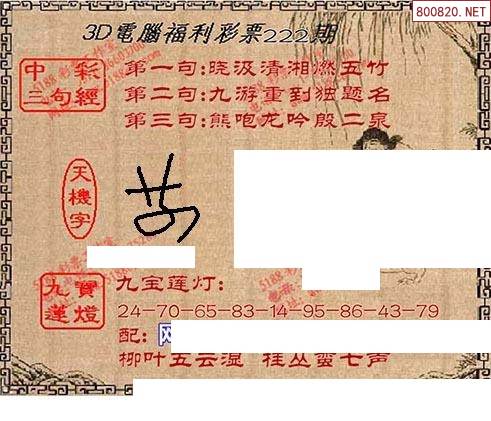 800820.NET
3D電腦福利彩票222期
中彩
三句經
第一句:晓汲清湘燃五竹
第二句:九游重到独题名
第三句:熊咆龙吟殷二泉
天機字
九寶
蓮燈
九宝莲灯:
24-70-65-83-14-95-86-43-79
配:
柳叶五云湿 桂丛蛩七声